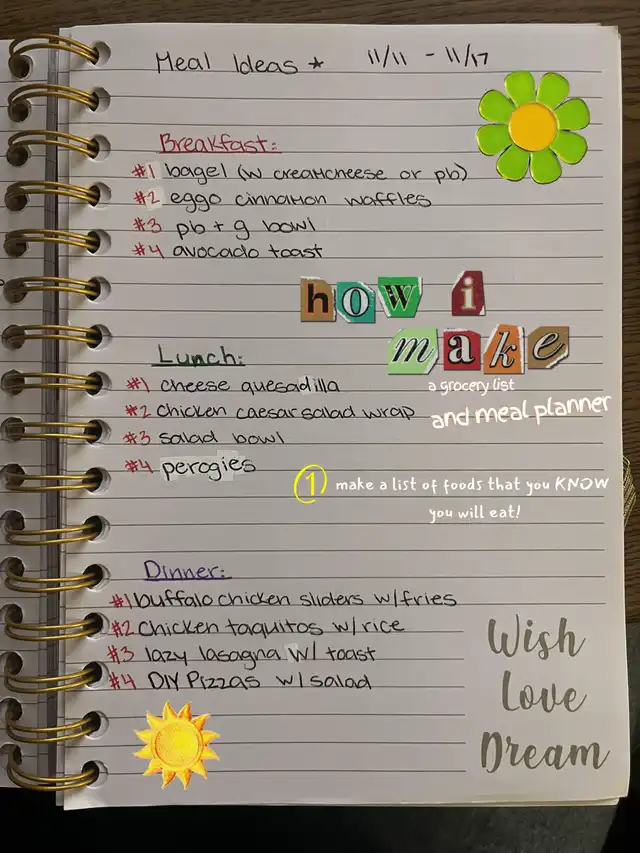 Meal Ideas ★ 11/11 - 11/17
Breakfast:
#1 bagel (w creamcheese or pb)
#2 eggo cinnamon waffles
#3 pb + g bowl
#4 avocado toast
how i
make
a grocery list
and meal planner
Lunch:
#1 cheese quesadilla
#2 chicken caesar salad wrap
#3 salad bowl
#4 perogies
1 make a list of foods that you KNOW
you will eat!
Dinner:
#1 buffalo chicken sliders w/fries
#2 chicken taquitos w/rice
#3 lazy lasagna w/ toast
#4 DIY Pizzas w/salad
Wish
Love
Dream